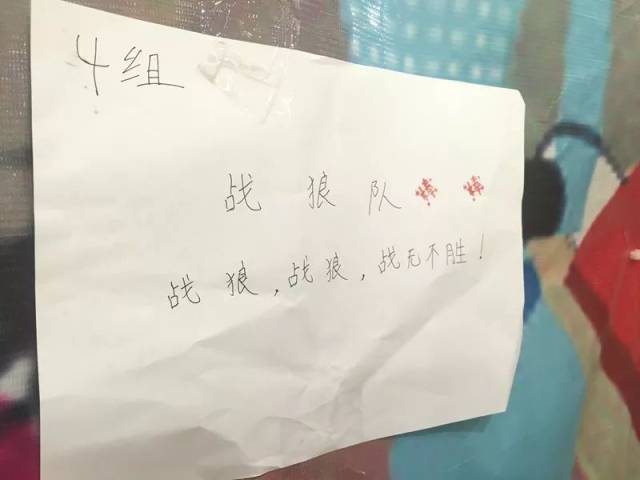 4组
战狼队 棒 棒
战狼,战狼,战无不胜!